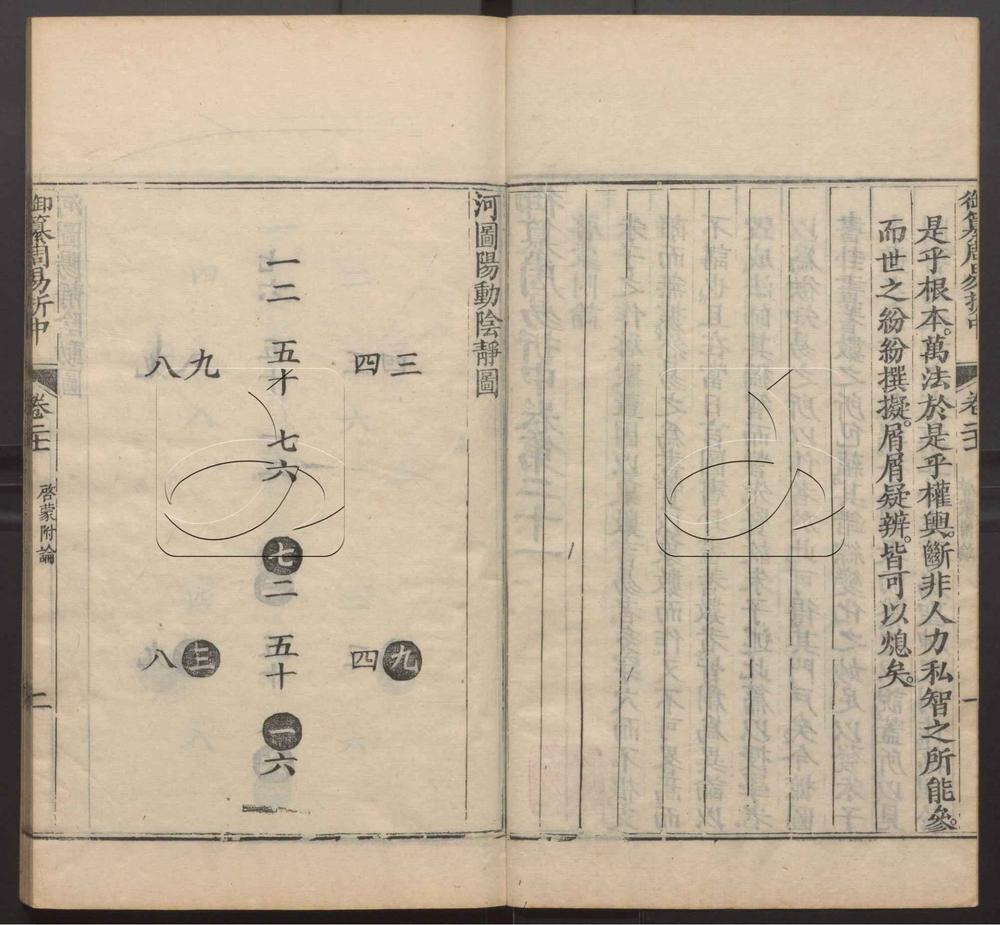 是乎根本。萬法於是乎權輿。斷非人力私智之所能參。
而世之紛紛撰擬。屑屑疑辨。皆可以熄矣。
一
河圖陽動陰靜圖
三
四
九
四
一二
五才
七六
七二
五十
一六
九
八
三
八
御纂周易折中
啓蒙附論
二